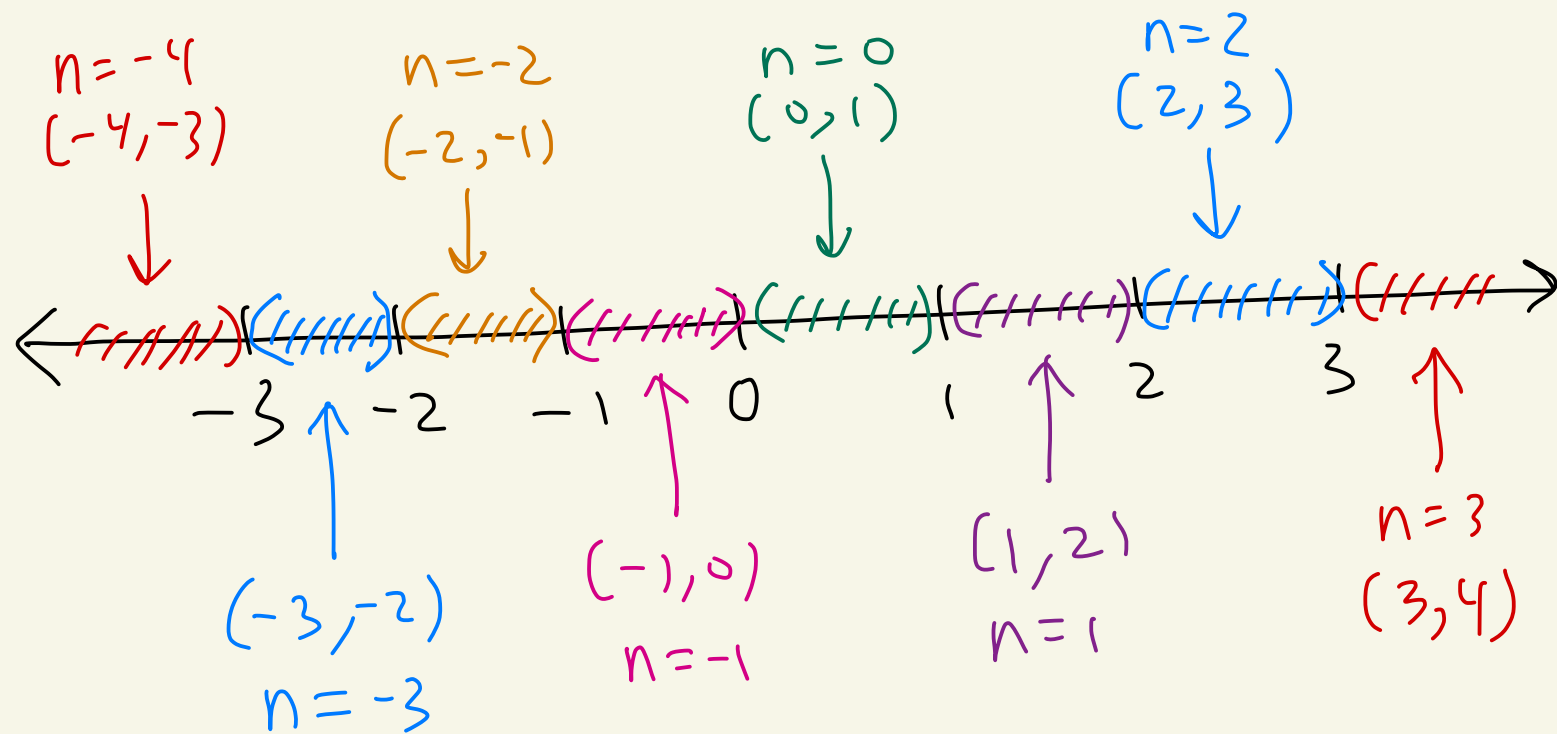 n = -4
(-4, -3)
n = -2
(-2, -1)
n = 0
(0, 1)
n = 2
(2, 3)
-3 -2 -1 0 1 2 3
(-3, -2)
n = -3
(-1, 0)
n = -1
(1, 2)
n = 1
n = 3
(3, 4)